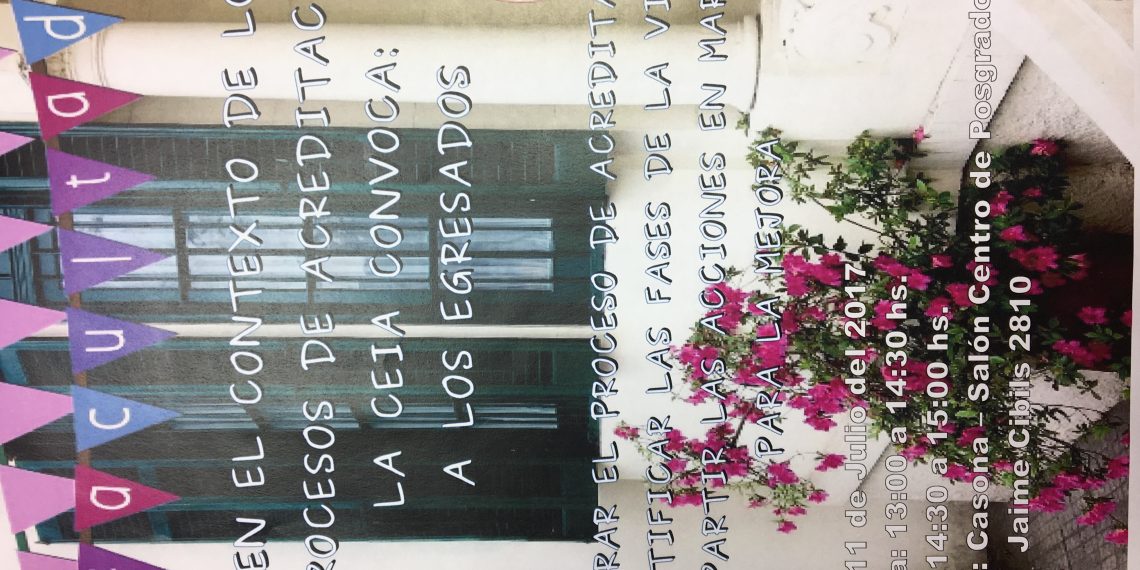 acultad
EN EL CONTEXTO DE LO
ROCESOS DE ACREDITAC
LA CEIA CONVOCA:
A LOS EGRESADOS
RAR EL PROCESO DE ACREDITA
TIFICAR LAS FASES DE LA VI
PARTIR LAS ACCIONES EN MAR
PARA LA MEJORA.
11 de Julio del 2017
a: 13:00 a 14:30 hs.
14:30 a 15:00 hs.
: Casona - Salón Centro de Posgrado
Jaime Cibils 2810